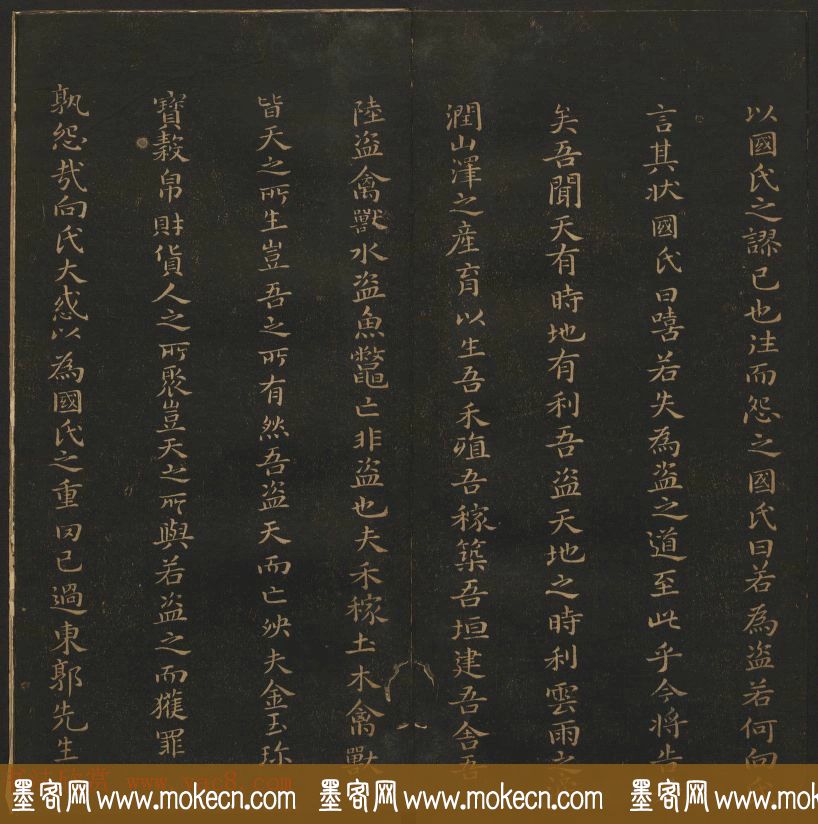 以國氏之謬已也往而怨之國氏曰若為盜若何向
言其狀國氏曰嘻若失為盜之道至此乎今將告
矣吾聞天有時地有利吾盜天地之時利雲雨之
潤山澤之產育以生吾禾殖吾稼築吾垣建吾舍吾
陸盜禽獸水盜魚鼈亡非盜也夫禾稼土木禽獸
皆天之所生豈吾之所有然吾盜天而亡殃夫金玉珎
寶穀帛財貨人之所聚豈天之所與若盜之而獲罪
孰怨哉向氏大惑以為國氏之重罔已過東郭先生
墨客网 www.mokecn.com 墨客网 www.mokecn.com 墨客网 www.mokecn.com